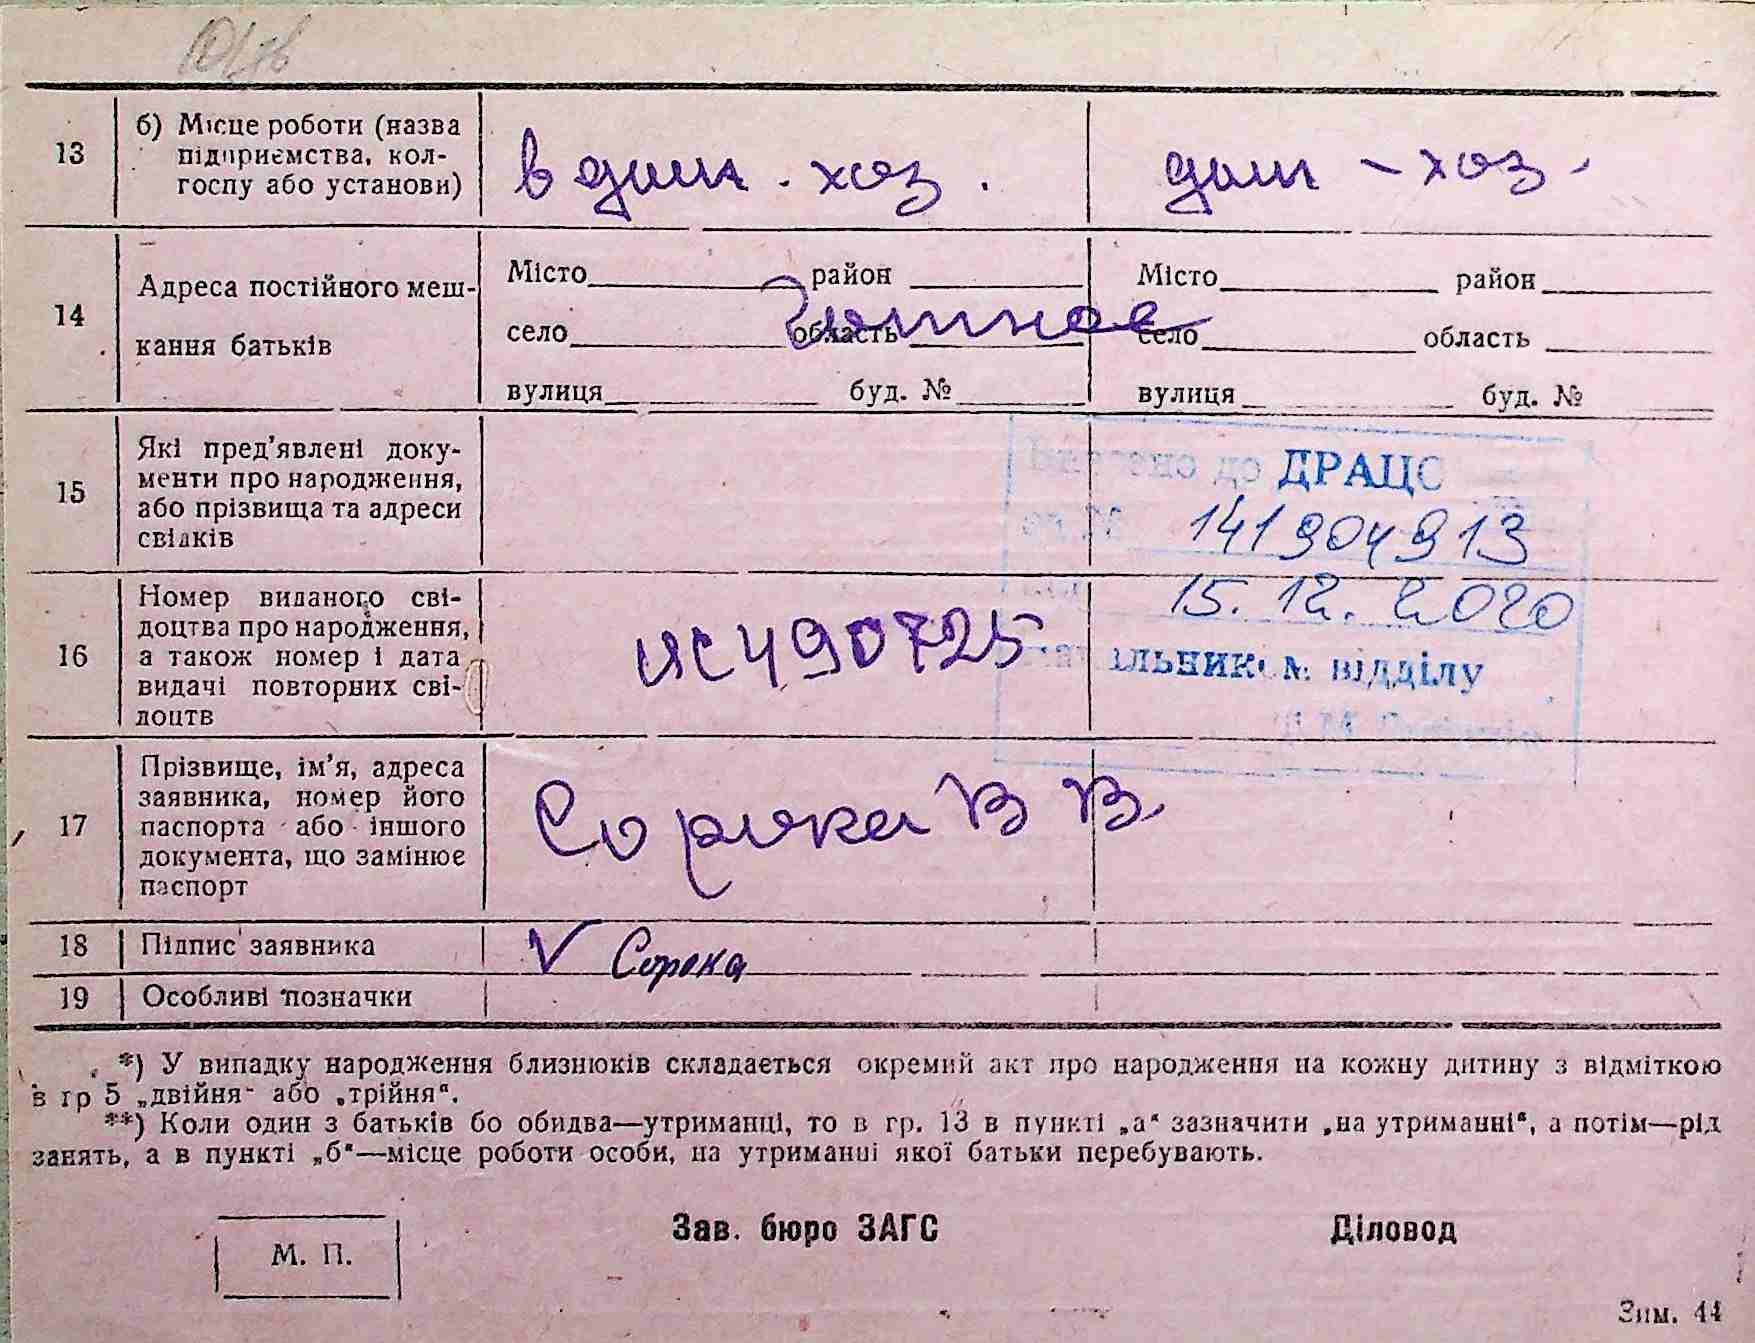 13
б) Місце роботи (назва
підприємства, кол-
госпу або установи)
в дом. хоз.
дом - хоз -
14
Адреса постійного меш-
кання батьків
Місто район
село область
вулиця буд. №
Місто район
село область
вулиця буд. №
15
Які пред'явлені доку-
менти про народження,
або прізвища та адреси
свідків
ДРАЦС
141904913
15.12.2020
відділу
16
Номер виданого сві-
доцтва про народження,
а також номер і дата
видачі повторних сві-
доцтв
ИС 490725
17
Прізвище, ім'я, адреса
заявника, номер його
паспорта або іншого
документа, що замінює
паспорт
Сорока В В.
18
Підпис заявника
V Сорока
19
Особливі позначки
*) У випадку народження близнюків складається окремий акт про народження на кожну дитину з відміткою
в гр 5 „двійня“ або „трійня“.
**) Коли один з батьків бо обидва—утриманці, то в гр. 13 в пункті „а“ зазначити „на утриманні“, а потім—рід
занять, а в пункті „б“—місце роботи особи, на утриманні якої батьки перебувають.
М. П.
Зав. бюро ЗАГС
Діловод
Зим. 44